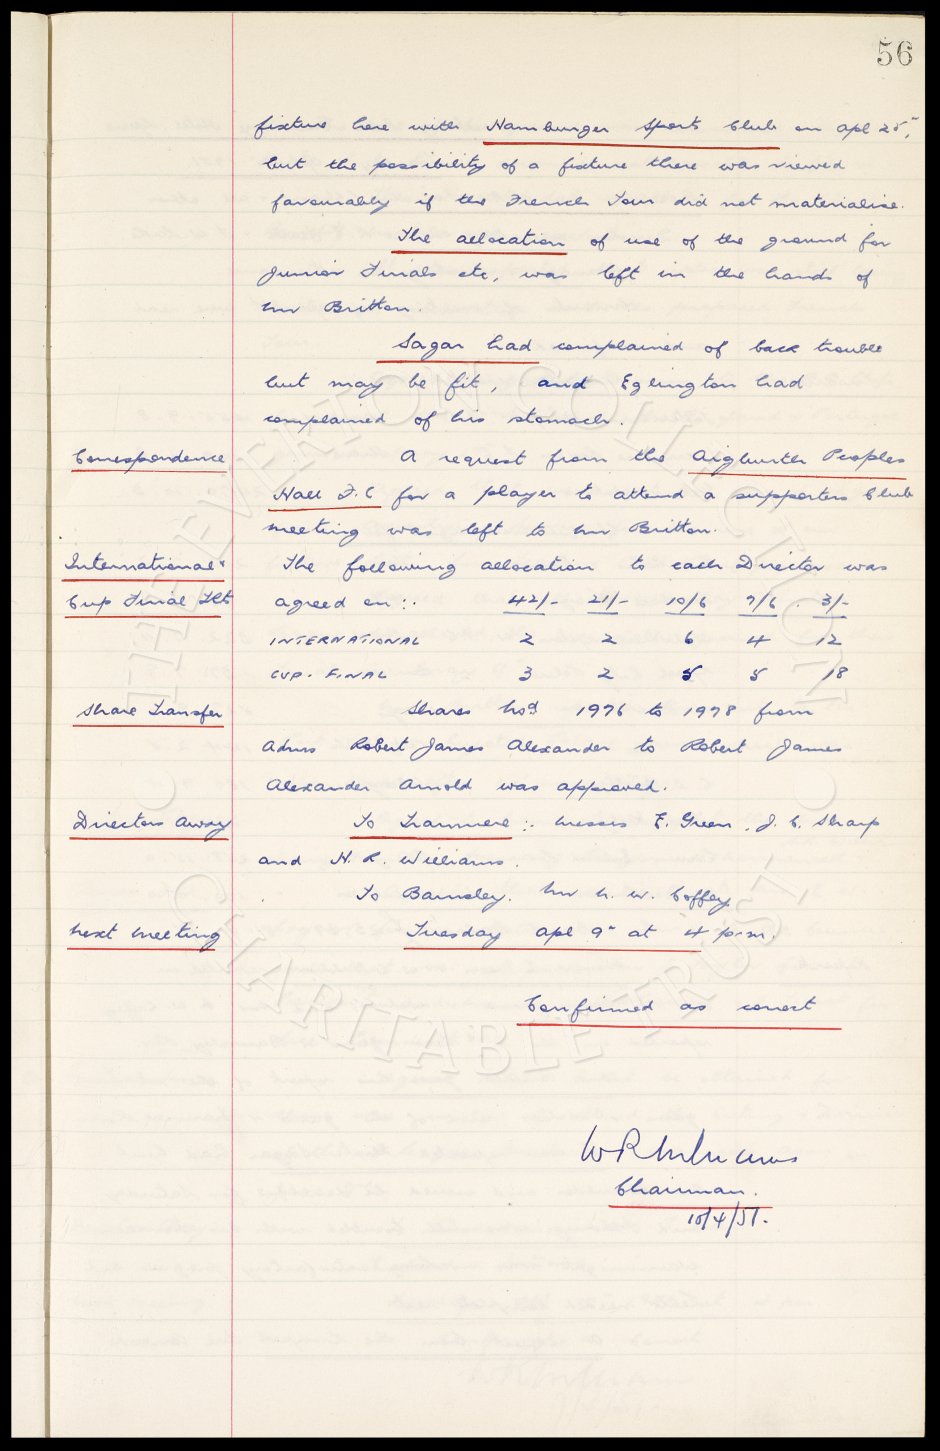 56
fixture here with Hamburger Sports Club on Apl 25",
but the possibility of a fixture there was viewed
favourably if the French Tour did not materialise.
The allocation of use of the ground for
Junior Finals etc, was left in the hands of
Mr Britton.
Sagar had complained of back trouble
but may be fit, and Eglington had
complained of his stomach.
Correspondence A request from the Aigburth Peoples
Hall F.C for a player to attend a supporters Club
meeting was left to Mr Britton.
International & The following allocation to each Director was
Cup Final Tkts agreed on :- 42/- 21/- 10/6 7/6 3/-
INTERNATIONAL 2 2 6 4 12
CUP. FINAL 3 2 5 5 18
Share Transfer Shares Nos 1976 to 1978 from
Admrs Robert James Alexander to Robert James
Alexander Arnold was approved.
Directors Away To Tranmere :- Messrs E. Green, J. C. Sharp
and H. R. Williams.
To Barnsley. Mr N. W. Coffey
Next Meeting Tuesday Apl 9" at 4 p.m.
Confirmed as correct
W R Williams
Chairman.
10/4/51.
THE EVERTON COLLECTION
CHARITABLE TRUST